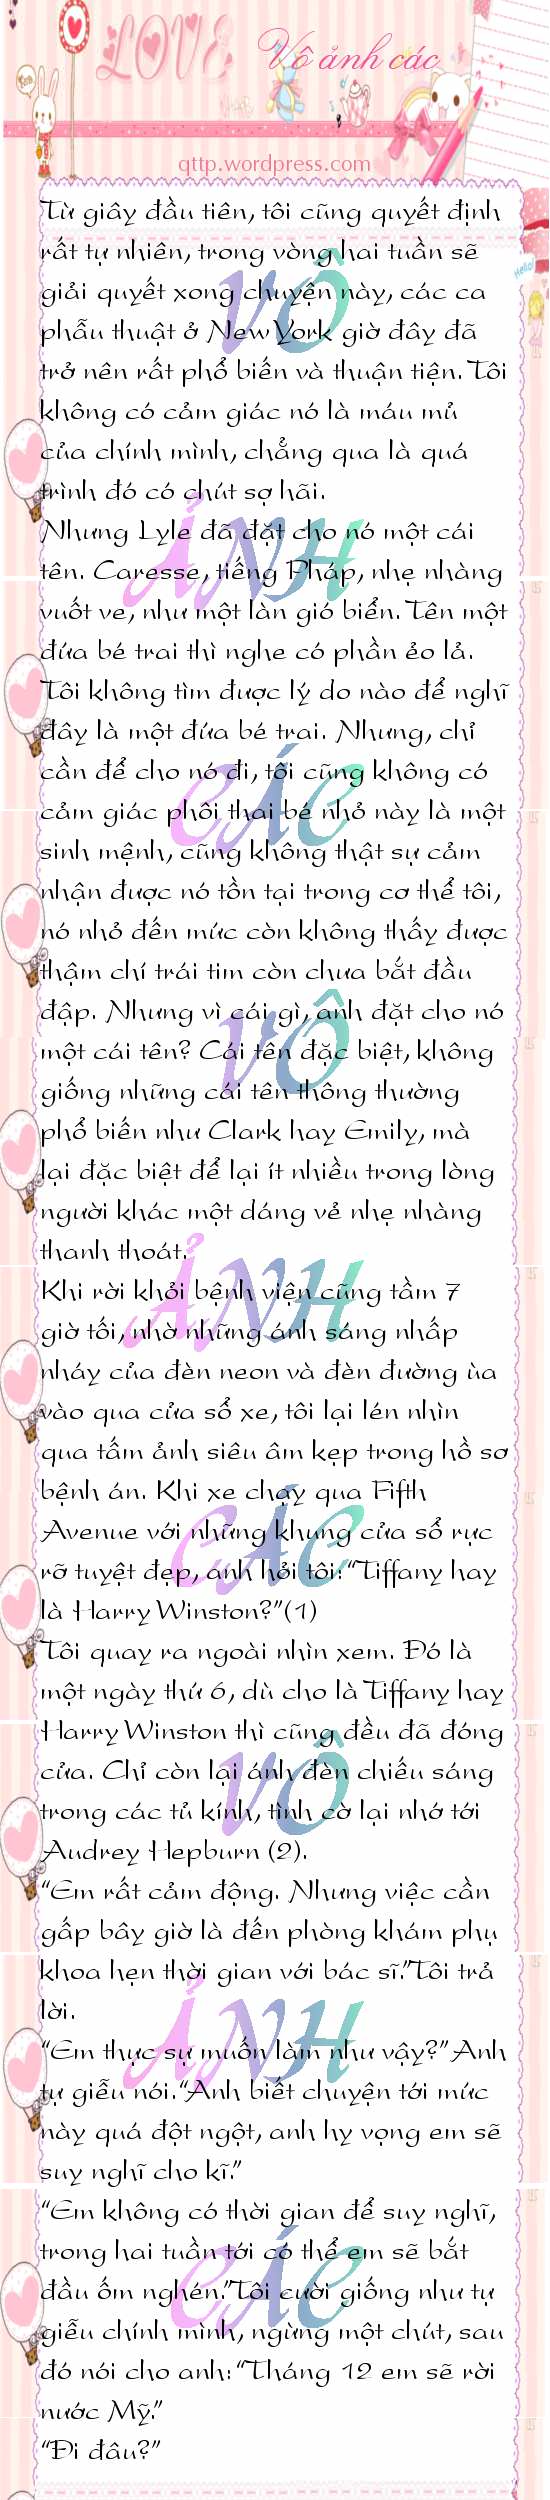 LOVE
Vô ảnh các
qttp.wordpress.com
Hello!
Từ giây đầu tiên, tôi cũng quyết định
rất tự nhiên, trong vòng hai tuần sẽ
giải quyết xong chuyện này, các ca
phẫu thuật ở New York giờ đây đã
trở nên rất phổ biến và thuận tiện. Tôi
không có cảm giác nó là máu mủ
của chính mình, chẳng qua là quá
trình đó có chút sợ hãi.
Nhưng Lyle đã đặt cho nó một cái
tên. Caresse, tiếng Pháp, nhẹ nhàng
vuốt ve, như một làn gió biển. Tên một
đứa bé trai thì nghe có phần ẻo lả.
Tôi không tìm được lý do nào để nghĩ
đây là một đứa bé trai. Nhưng, chỉ
cần để cho nó đi, tôi cũng không có
cảm giác phôi thai bé nhỏ này là một
sinh mệnh, cũng không thật sự cảm
nhận được nó tồn tại trong cơ thể tôi,
nó nhỏ đến mức còn không thấy được
thậm chí trái tim còn chưa bắt đầu
đập. Nhưng vì cái gì, anh đặt cho nó
một cái tên? Cái tên đặc biệt, không
giống những cái tên thông thường
phổ biến như Clark hay Emily, mà
lại đặc biệt để lại ít nhiều trong lòng
người khác một dáng vẻ nhẹ nhàng
thanh thoát.
Khi rời khỏi bệnh viện cũng tầm 7
giờ tối, nhờ những ánh sáng nhấp
nháy của đèn neon và đèn đường ùa
vào qua cửa sổ xe, tôi lại lén nhìn
qua tấm ảnh siêu âm kẹp trong hồ sơ
bệnh án. Khi xe chạy qua Fifth
Avenue với những khung cửa sổ rực
rỡ tuyệt đẹp, anh hỏi tôi: "Tiffany hay
là Harry Winston?"(1)
Tôi quay ra ngoài nhìn xem. Đó là
một ngày thứ 6, dù cho là Tiffany hay
Harry Winston thì cũng đều đã đóng
cửa. Chỉ còn lại ánh đèn chiếu sáng
trong các tủ kính, tình cờ lại nhớ tới
Audrey Hepburn (2).
"Em rất cảm động. Nhưng việc cần
gấp bây giờ là đến phòng khám phụ
khoa hẹn thời gian với bác sĩ." Tôi trả
lời.
"Em thực sự muốn làm như vậy?" Anh
tự giễu nói. "Anh biết chuyện tới mức
này quá đột ngột, anh hy vọng em sẽ
suy nghĩ cho kĩ."
"Em không có thời gian để suy nghĩ,
trong hai tuần tới có thể em sẽ bắt
đầu ốm nghén." Tôi cười giống như tự
giễu chính mình, ngừng một chút, sau
đó nói cho anh: "Tháng 12 em sẽ rời
nước Mỹ."
"Đi đâu?"
VÔ
ẢNH
CÁC
VÔ
ẢNH
CÁC
VÔ
ẢNH
CÁC